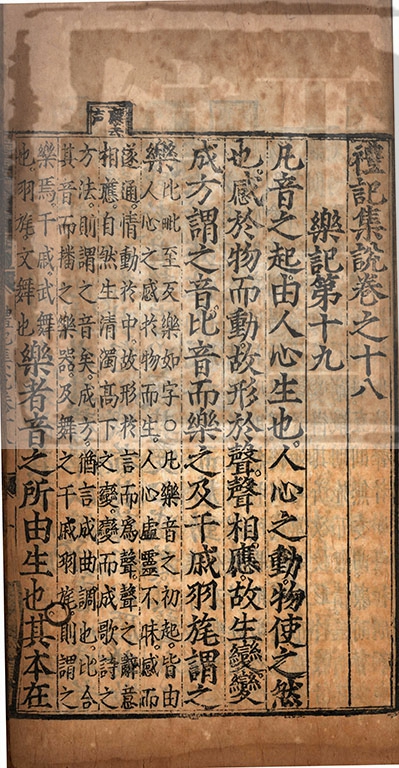 禮記集説卷之十八
樂記第十九
凡音之起由人心生也人心之動物使之然
也感於物而動故形於聲聲相應故生變變
成方謂之音比音而樂之及干戚羽旄謂之
樂比毗至反樂如字○凡樂音之初起皆由
人心之感於物而生人心虛靈不昧感而
遂通情動於中故形於言而爲聲聲之辭意
相應自然生清濁高下之變變而成歌詩之
方法則謂之音矣成方猶言成曲調也比合
其音而播之樂器及舞之干戚羽旄則謂之
樂焉干戚武舞
也羽旄文舞也
樂者音之所由生也其本在